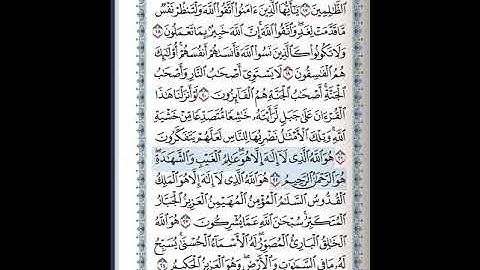 ٱلظَّٰلِمِينَ ١٧ يَٰٓأَيُّهَا ٱلَّذِينَ ءَامَنُوا۟ ٱتَّقُوا۟ ٱللَّهَ وَلْتَنظُرْ نَفْسٌ
مَّا قَدَّمَتْ لِغَدٍ وَٱتَّقُوا۟ ٱللَّهَ إِنَّ ٱللَّهَ خَبِيرٌۢ بِمَا تَعْمَلُونَ ١٨
وَلَا تَكُونُوا۟ كَٱلَّذِينَ نَسُوا۟ ٱللَّهَ فَأَنسَىٰهُمْ أَنفُسَهُمْ أُو۟لَٰٓئِكَ
هُمُ ٱلْفَٰسِقُونَ ١٩ لَا يَسْتَوِىٓ أَصْحَٰبُ ٱلنَّارِ وَأَصْحَٰبُ
ٱلْجَنَّةِ أَصْحَٰبُ ٱلْجَنَّةِ هُمُ ٱلْفَآئِزُونَ ٢٠ لَوْ أَنزَلْنَا هَٰذَا
ٱلْقُرْءَانَ عَلَىٰ جَبَلٍ لَّرَأَيْتَهُۥ خَٰشِعًا مُّتَصَدِّعًا مِّنْ خَشْيَةِ
ٱللَّهِ وَتِلْكَ ٱلْأَمْثَٰلُ نَضْرِبُهَا لِلنَّاسِ لَعَلَّهُمْ يَتَفَكَّرُونَ
٢١ هُوَ ٱللَّهُ ٱلَّذِى لَآ إِلَٰهَ إِلَّا هُوَ عَٰلِمُ ٱلْغَيْبِ وَٱلشَّهَٰدَةِ
هُوَ ٱلرَّحْمَٰنُ ٱلرَّحِيمُ ٢٢ هُوَ ٱللَّهُ ٱلَّذِى لَآ إِلَٰهَ إِلَّا هُوَ ٱلْمَلِكُ
ٱلْقُدُّوسُ ٱلسَّلَٰمُ ٱلْمُؤْمِنُ ٱلْمُهَيْمِنُ ٱلْعَزِيزُ ٱلْجَبَّارُ
ٱلْمُتَكَبِّرُ سُبْحَٰنَ ٱللَّهِ عَمَّا يُشْرِكُونَ ٢٣ هُوَ ٱللَّهُ
ٱلْخَٰلِقُ ٱلْبَارِئُ ٱلْمُصَوِّرُ لَهُ ٱلْأَسْمَآءُ ٱلْحُسْنَىٰ يُسَبِّحُ
لَهُۥ مَا فِى ٱلسَّمَٰوَٰتِ وَٱلْأَرْضِ وَهُوَ ٱلْعَزِيزُ ٱلْحَكِيمُ ٢٤